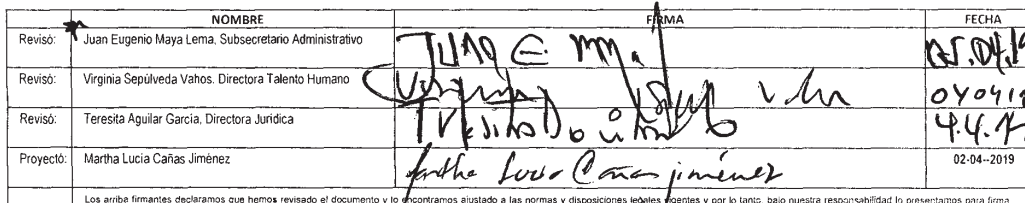 NOMBRE FIRMA FECHA
Revisó: Juan Eugenio Maya Lema, Subsecretario Administrativo
Revisó: Virginia Sepúlveda Vahos. Directora Talento Humano 040419
Revisó: Teresita Aguilar García, Directora Jurídica
Proyectó: Martha Lucia Cañas Jiménez Martha Lucia Cañas jiménez 02-04--2019
Los arriba firmantes declaramos que hemos revisado el documento y lo encontramos ajustado a las normas y disposiciones legales vigentes y por lo tanto, bajo nuestra responsabilidad lo presentamos para firma